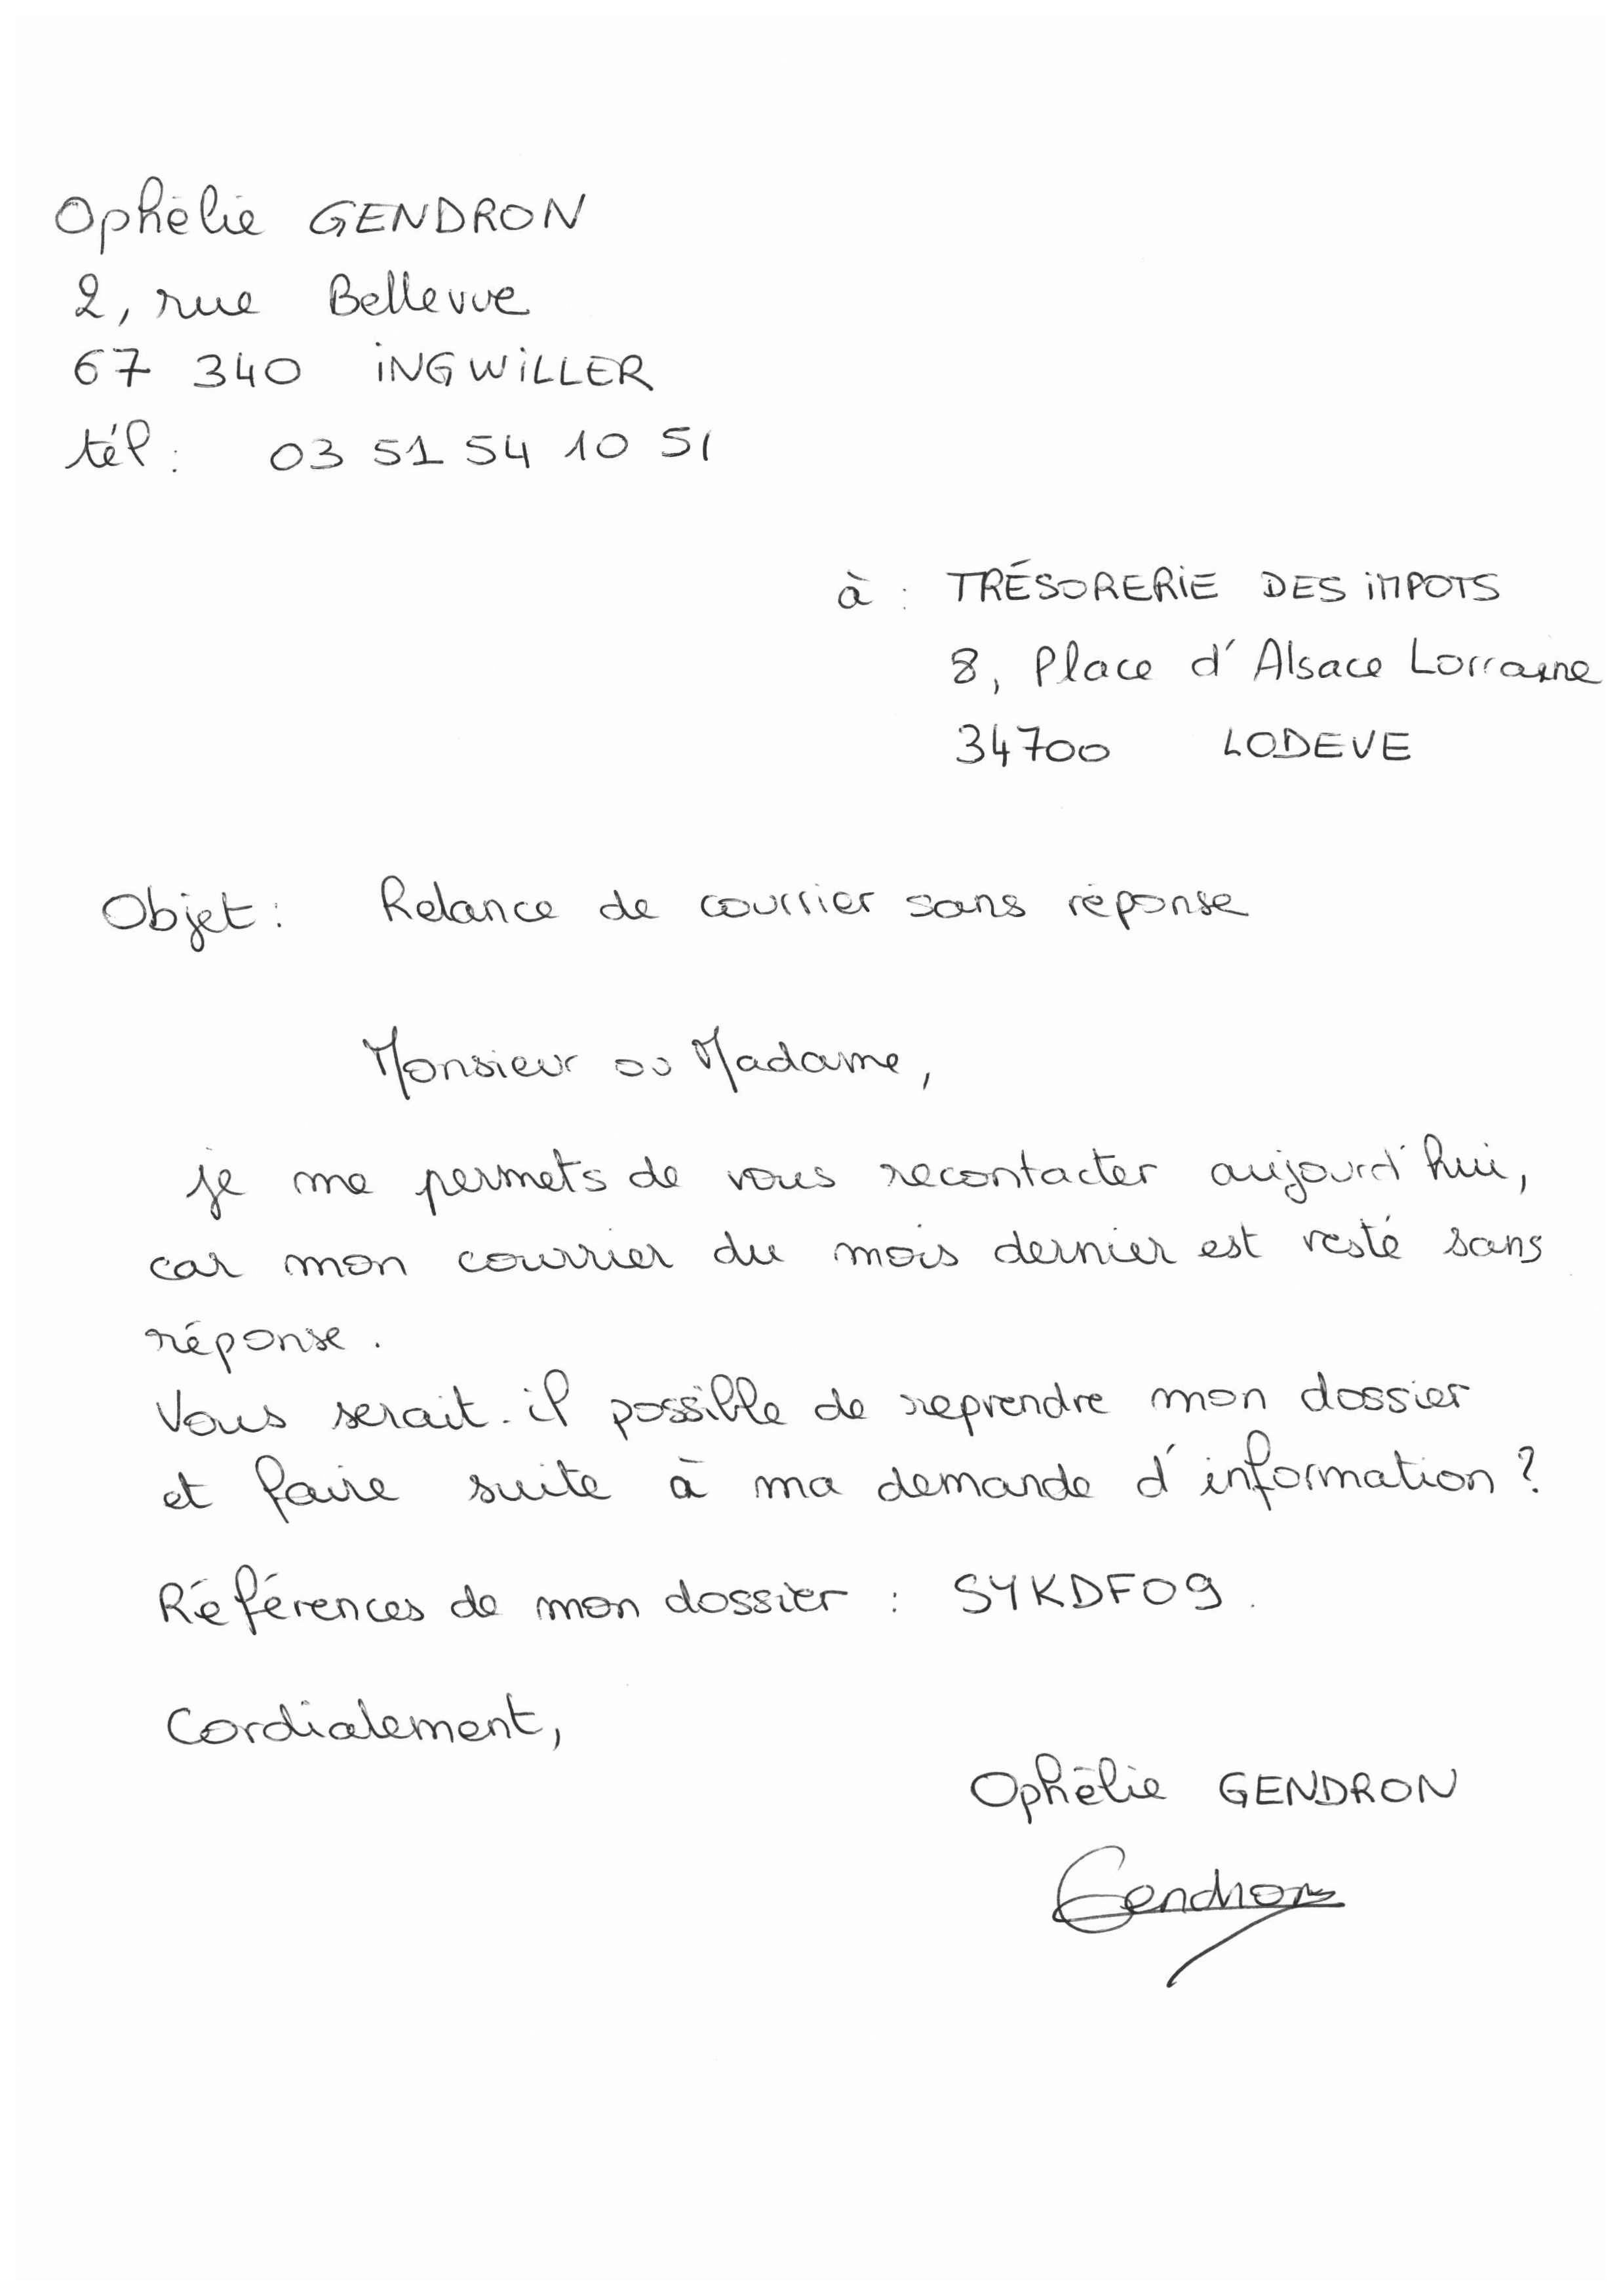 Ophélie GENDRON
2, rue Bellevue
67 340 INGWILLER
tél : 03 51 54 10 51
à : TRÉSORERIE DES IMPOTS
8, Place d'Alsace Lorraine
34700 LODEVE
Objet : Relance de courrier sans réponse
Monsieur ou Madame,
je me permets de vous recontacter aujourd'hui,
car mon courrier du mois dernier est resté sans
réponse.
Vous serait-il possible de reprendre mon dossier
et faire suite à ma demande d'information ?
Références de mon dossier : SYKDF09.
Cordialement,
Ophélie GENDRON
Gendron